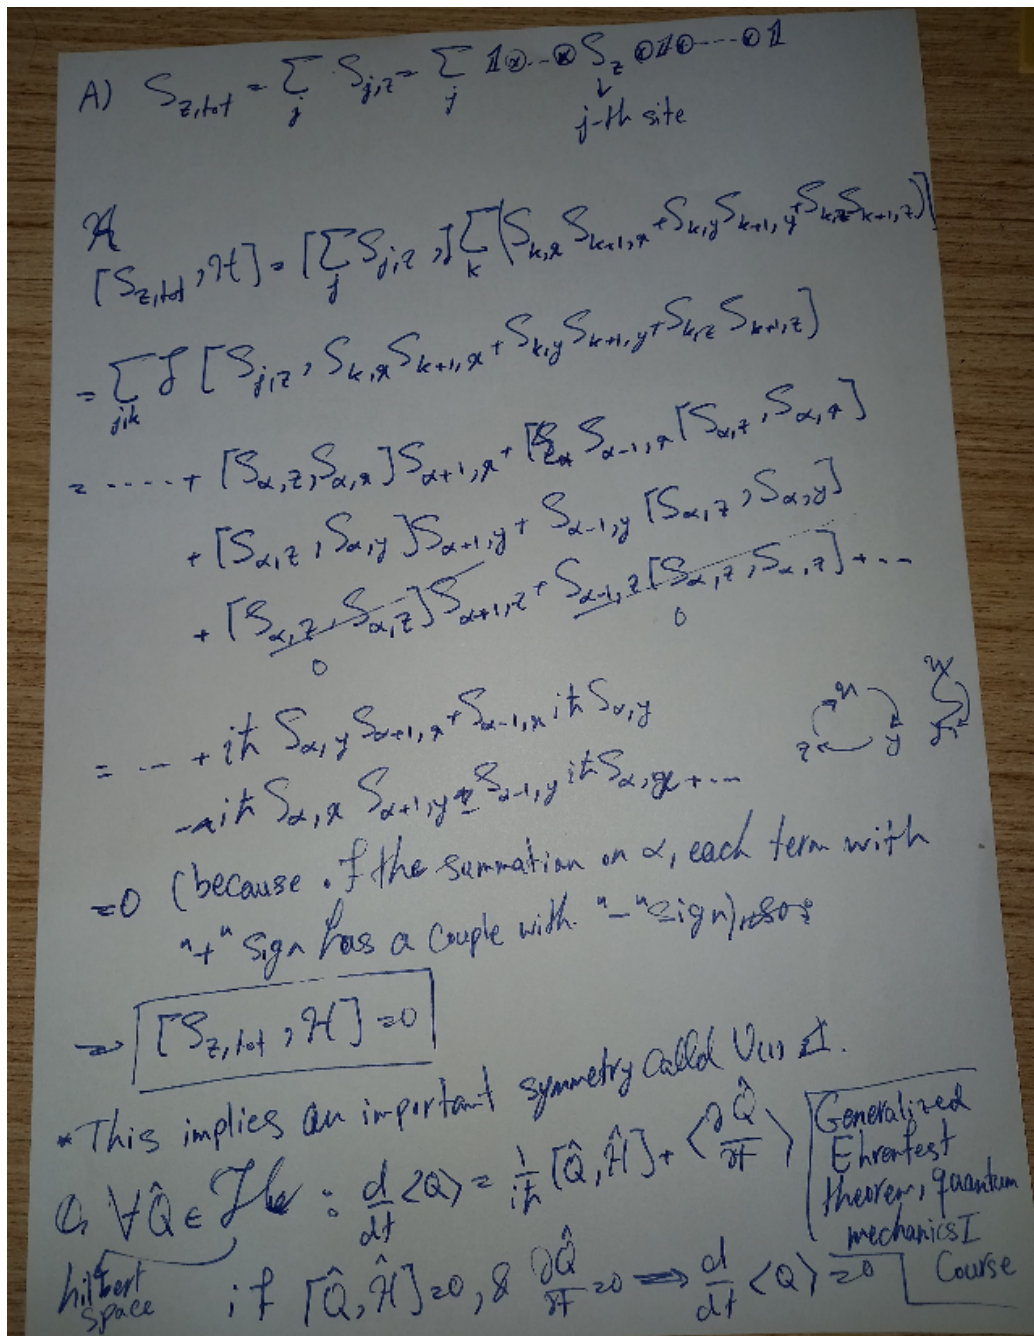 A) S_{z,tot} = Σ_j S_{j,z} = Σ_j 𝟙⊗...⊗S_z⊗𝟙⊗----⊗𝟙
↓
j-th site
[S_{z,tot}, H] = [Σ_j S_{j,z}, J Σ_k (S_{k,x} S_{k+1,x} + S_{k,y} S_{k+1,y} + S_{k,z} S_{k+1,z})]
= Σ_{j,k} J [S_{j,z}, S_{k,x} S_{k+1,x} + S_{k,y} S_{k+1,y} + S_{k,z} S_{k+1,z}]
= ..... + [S_{α,z}, S_{α,x}] S_{α+1,x} + S_{α-1,x} [S_{α,z}, S_{α,x}]
+ [S_{α,z}, S_{α,y}] S_{α+1,y} + S_{α-1,y} [S_{α,z}, S_{α,y}]
+ [S_{α,z}, S_{α,z}] S_{α+1,z} + S_{α-1,z} [S_{α,z}, S_{α,z}] + ...
0 0
x
z y
= ... + iħ S_{α,y} S_{α+1,x} + S_{α-1,x} iħ S_{α,y}
- iħ S_{α,x} S_{α+1,y} - S_{α-1,y} iħ S_{α,x} + ...
=0 (because of the summation on α, each term with
"+" sign has a couple with "-" sign), so:
⇒ [S_{z,tot}, H] = 0
* This implies an important symmetry called U(1).
∀Q̂ ∈ H : d/dt <Q> = 1/iħ [Q̂, Ĥ] + <∂Q̂/∂t>
hilbert
space
Generalized
Ehrenfest
theorem, quantum
mechanics I
Course
if [Q̂, Ĥ] = 0, & ∂Q̂/∂t = 0 ⇒ d/dt <Q> = 0